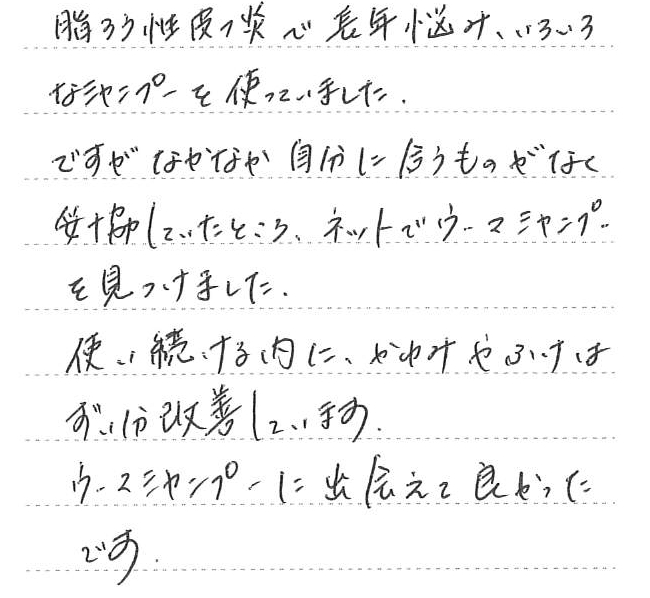 脂ろう性皮フ炎で長年悩み、いろいろ
なシャンプーを使っていました.
ですがなかなか自分に合うものがなく
妥協していたところ、ネットでウーマシャンプー
を見つけました.
使い続ける内に、かゆみやふけは
ずい分改善しています.
ウーマシャンプーに出会えて良かった
です.